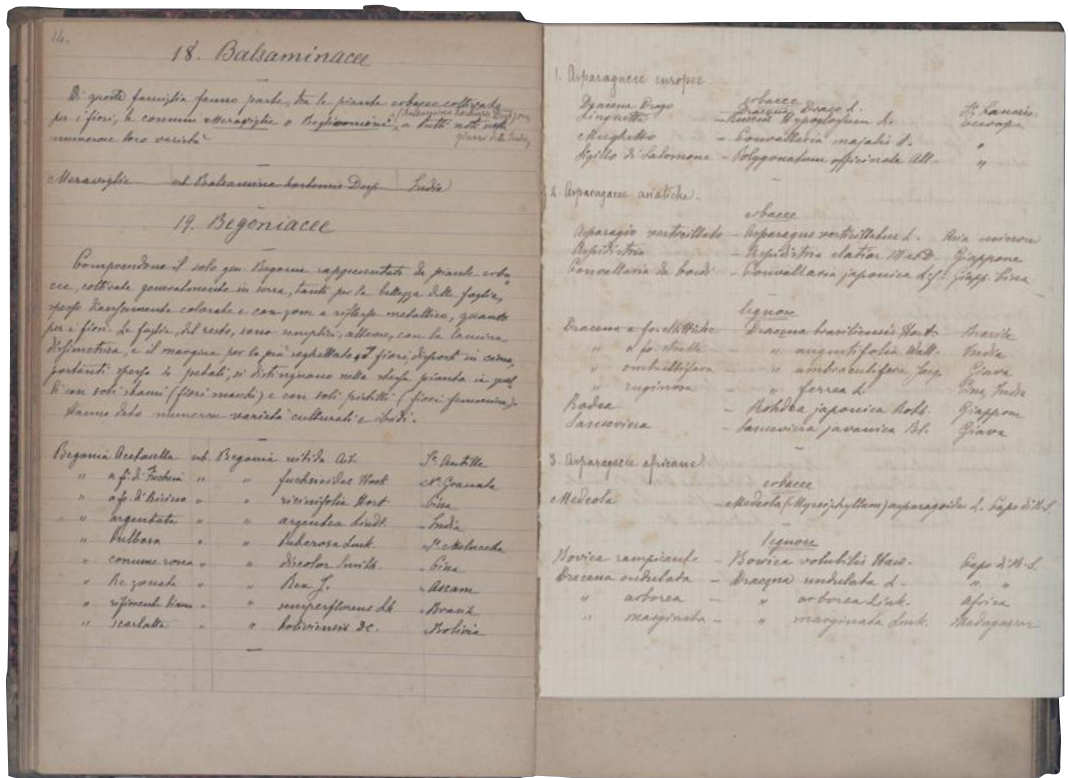 14.
18. Balsaminacee
Di questa famiglia fanno parte, tra le piante erbacee coltivate
per i fiori, le comuni Meraviglie o Begliuomini, (Balsamina hortensis Desp.) ora
a tutti note nelle
numerose loro varietà
Meraviglie erb. Balsamina hortensis Desp. India
19. Begoniacee
Comprendono il solo gen. Begonia rappresentato da piante erba
cee, coltivate generalmente in serra, tanto per la bellezza delle foglie,
spesso diversamente colorate e con riflesso metallico, quanto
per i fiori. Le foglie, del resto, sono semplici, alterne, con la lamina
disimetrica, e il margine per lo più seghettato. I fiori, disposti in cime,
portanti spesso 4 petali, si distinguono nella stessa pianta in quel
li con soli stami (fiori maschi) e con soli pistilli (fiori femminina).
Hanno dato numerose varietà culturali e ibridi.
Begonia Acetosella erb. Begonia nitida Ait. Is. Antille
" a f. di Fuchsia " " fuchsioides Hook N. Granata
" a fo. di Ricino " " ricinifolia Hort Cina
" argentata " " argentea Lindl. India
" bulbosa " " tuberosa Lmk. Is. Molucche
" comune rossa " " discolor Smith. Cina
" Re " " Rex J. Assam
" " " semperflorens Lk Brasile
" scarlatta " " boliviensis DC. Bolivia
1. Asparagacee europee
erbacee
Dracena Drago - Dracena Drago L. Is. Canarie
Linguetta - Ruscus Hypoglossum L. Europa
Mughetto - Convallaria majalis L. "
Sigillo di Salomone - Polygonatum officinale All. "
2. Asparagacee asiatiche
erbacee
Asparagio verticillato - Asparagus verticillatus L. Asia minore
Aspidistria - Aspidistria elatior Giappone
Convallaria da bordi - Convallaria japonica L. f. Giapp. Cina
legnose
Dracena a foe - Dracena brasiliensis Hort Brasile
" a fo. strette " angustifolia Wall. India
" ombrellifera " umbraculifera Jacq Giava
" ruginosa - " ferrea L. Cina, India
Rodea - Rohdea japonica Roth. Giappone
Sanseviera - Sanseviera javanica Bl. Giava
3. Asparagacee africane
erbacee
Medeola - Medeola (Myrsiphyllum) asparagoides L. Capo di B. S.
legnose
Bovica rampicante - Bowica volubilis Haw. Capo di B. S.
Dracena ondulata - Dracena undulata L. " "
" arborea - " arborea Link. Africa
" marginata - " marginata Lmk. Madagascar